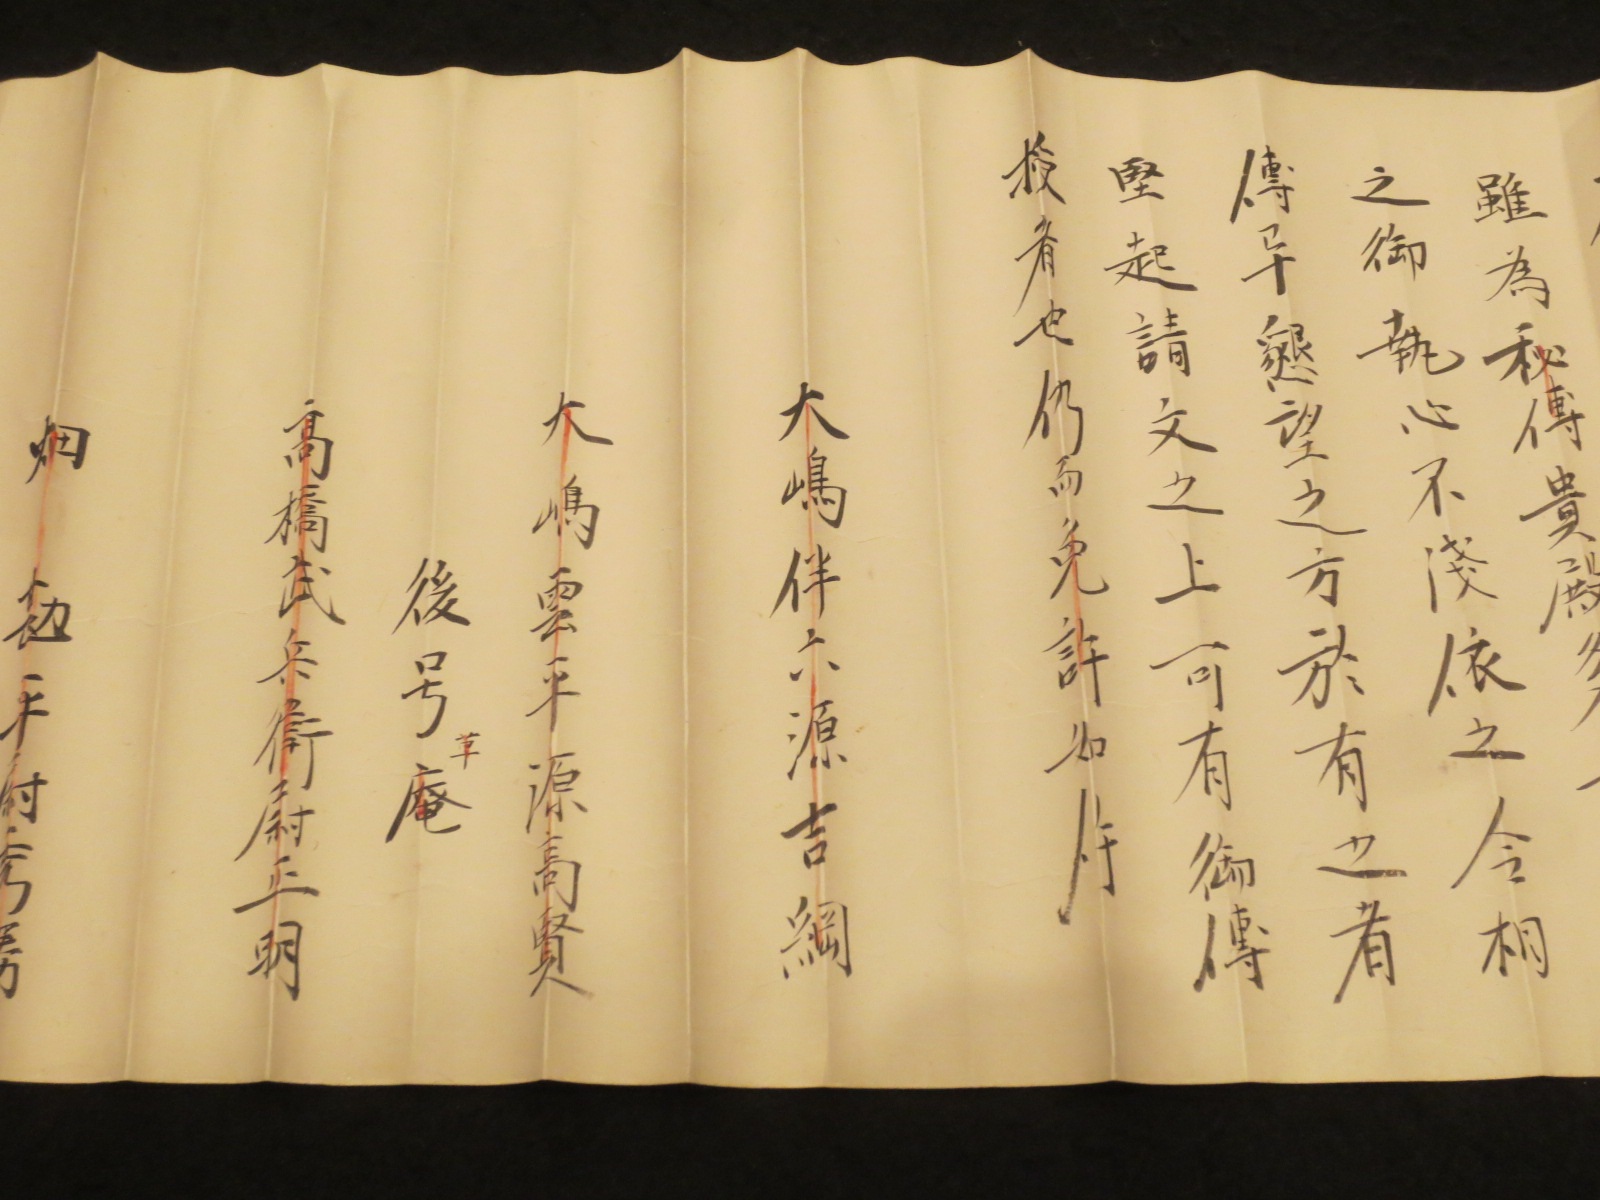 雖為秘傳貴殿
之御執心不淺依之令相
傳畢懇望之方於有之者
堅起請文之上可有御傳
授者也仍而免許如件
大嶋伴六源吉綱
大嶋雲平源高賢
後号草庵
高橋武兵衛尉正明
畑